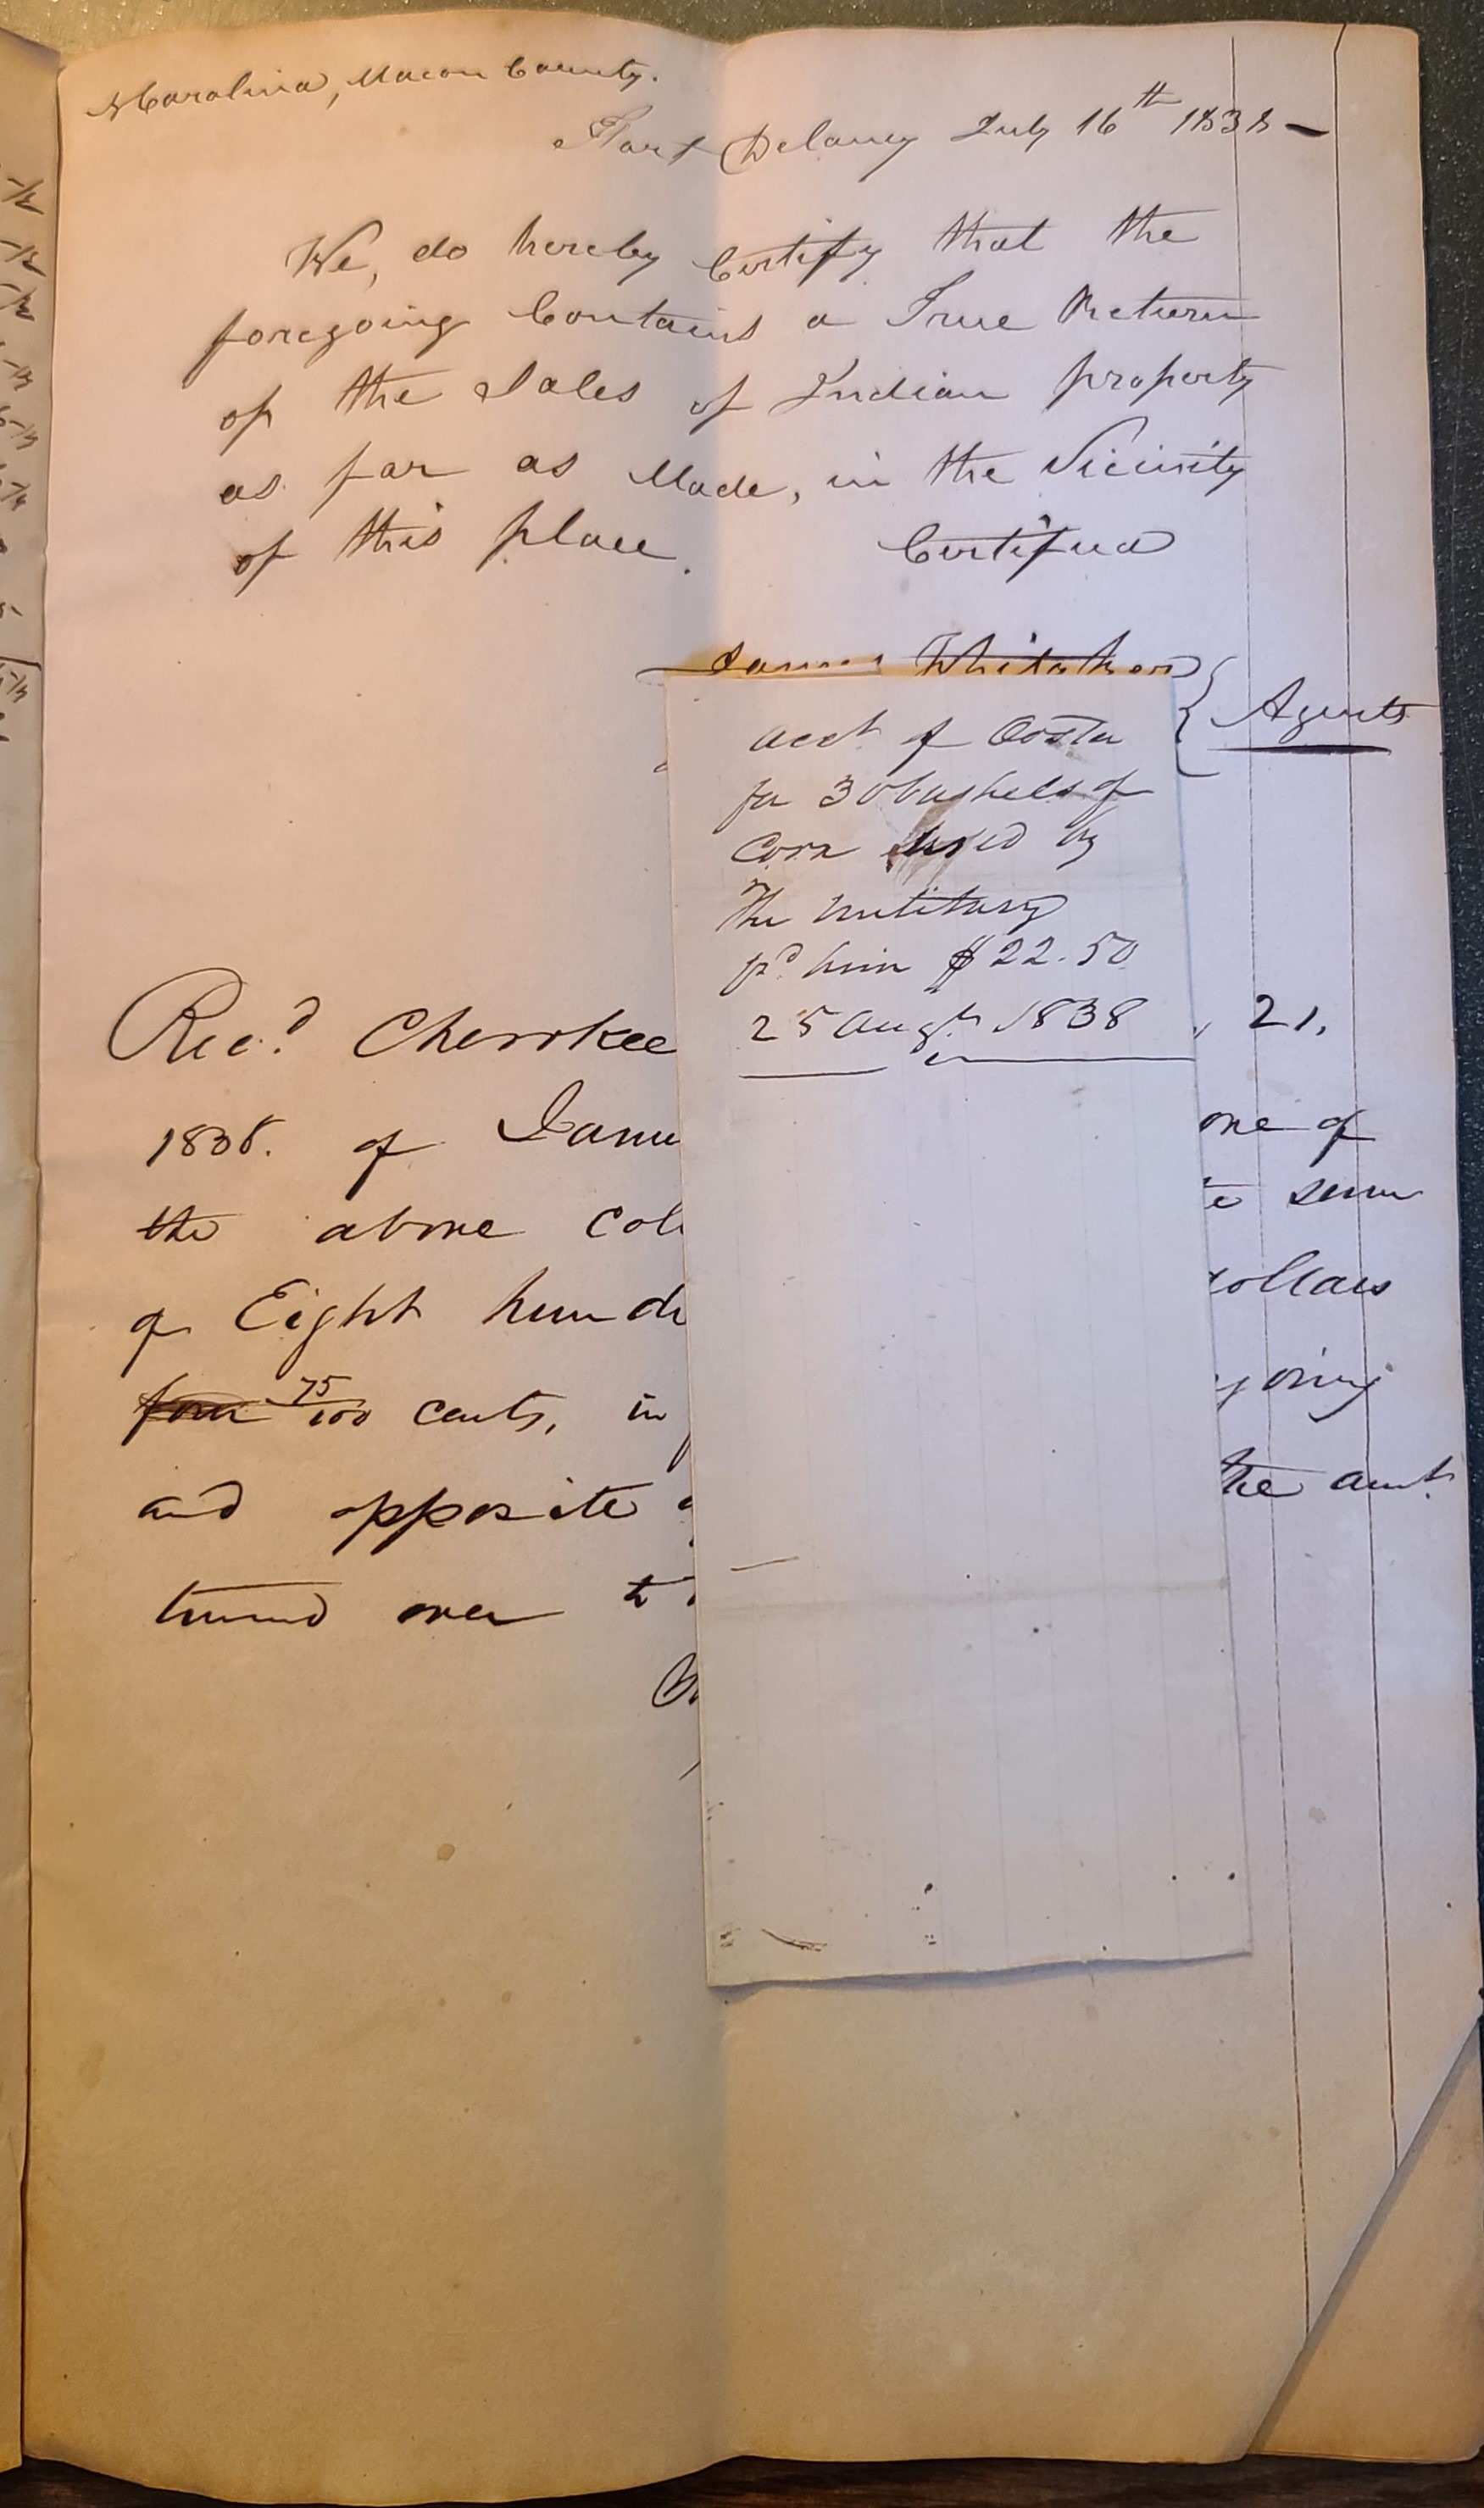 N Carolina, Macon County.
Fort Delaney July 16th 1838 —
We, do hereby Certify that the
foregoing Contains a True Return
of the Sales of Indian property
as far as Made, in the Vicinity
of this place. Certified
James Whitaker
Agents
acct of Oosta
for 30 bushels of
Corn used by
The military
pd him $22.50
25 Augt 1838
Recd. Cherokee 21,
1838. of one of
the above sum
of Eight hund dollars
four 75/100 cents, in going
and opposite the amt.
turned over to